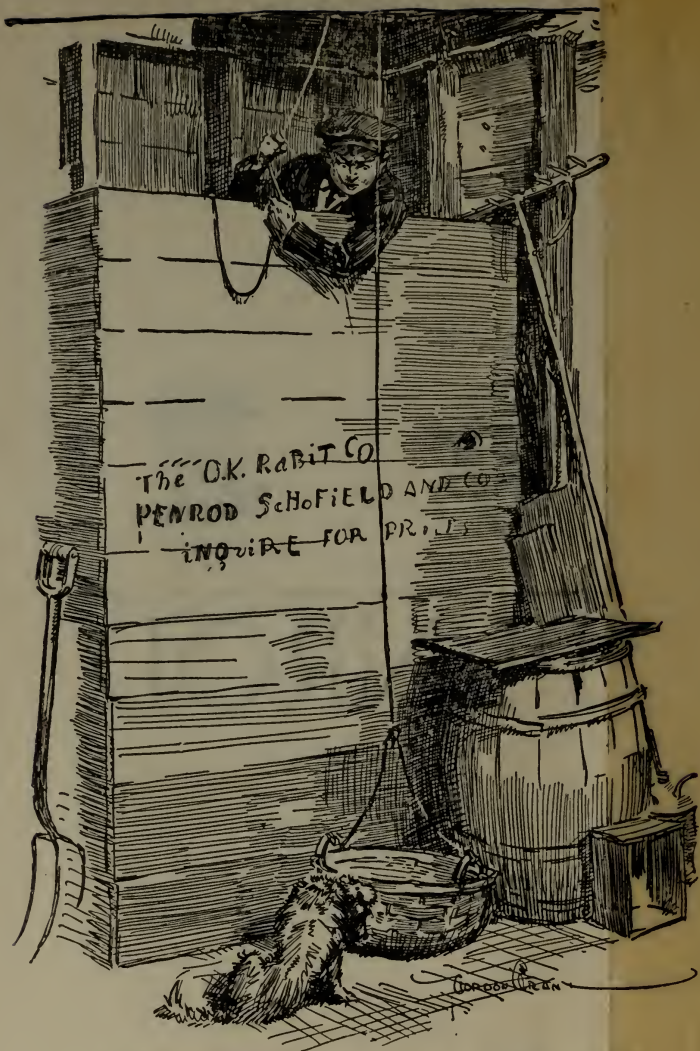 The O.K. RaBiT Co
PENROD ScHoFiELD AND CO
iNQuiRE FOR PRicES
GORDON GRANT